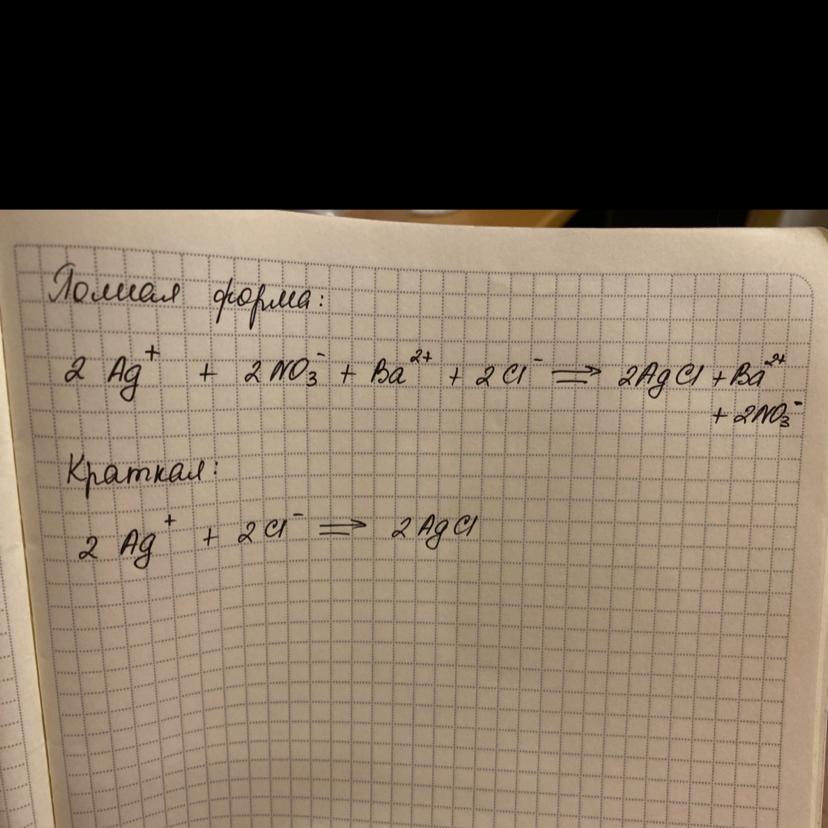 Полная форма:
2 Ag⁺ + 2NO₃⁻ + Ba²⁺ + 2Cl⁻ ⇒ 2AgCl + Ba²⁺
+ 2NO₃⁻
Краткая:
2 Ag⁺ + 2Cl⁻ ⇒ 2AgCl